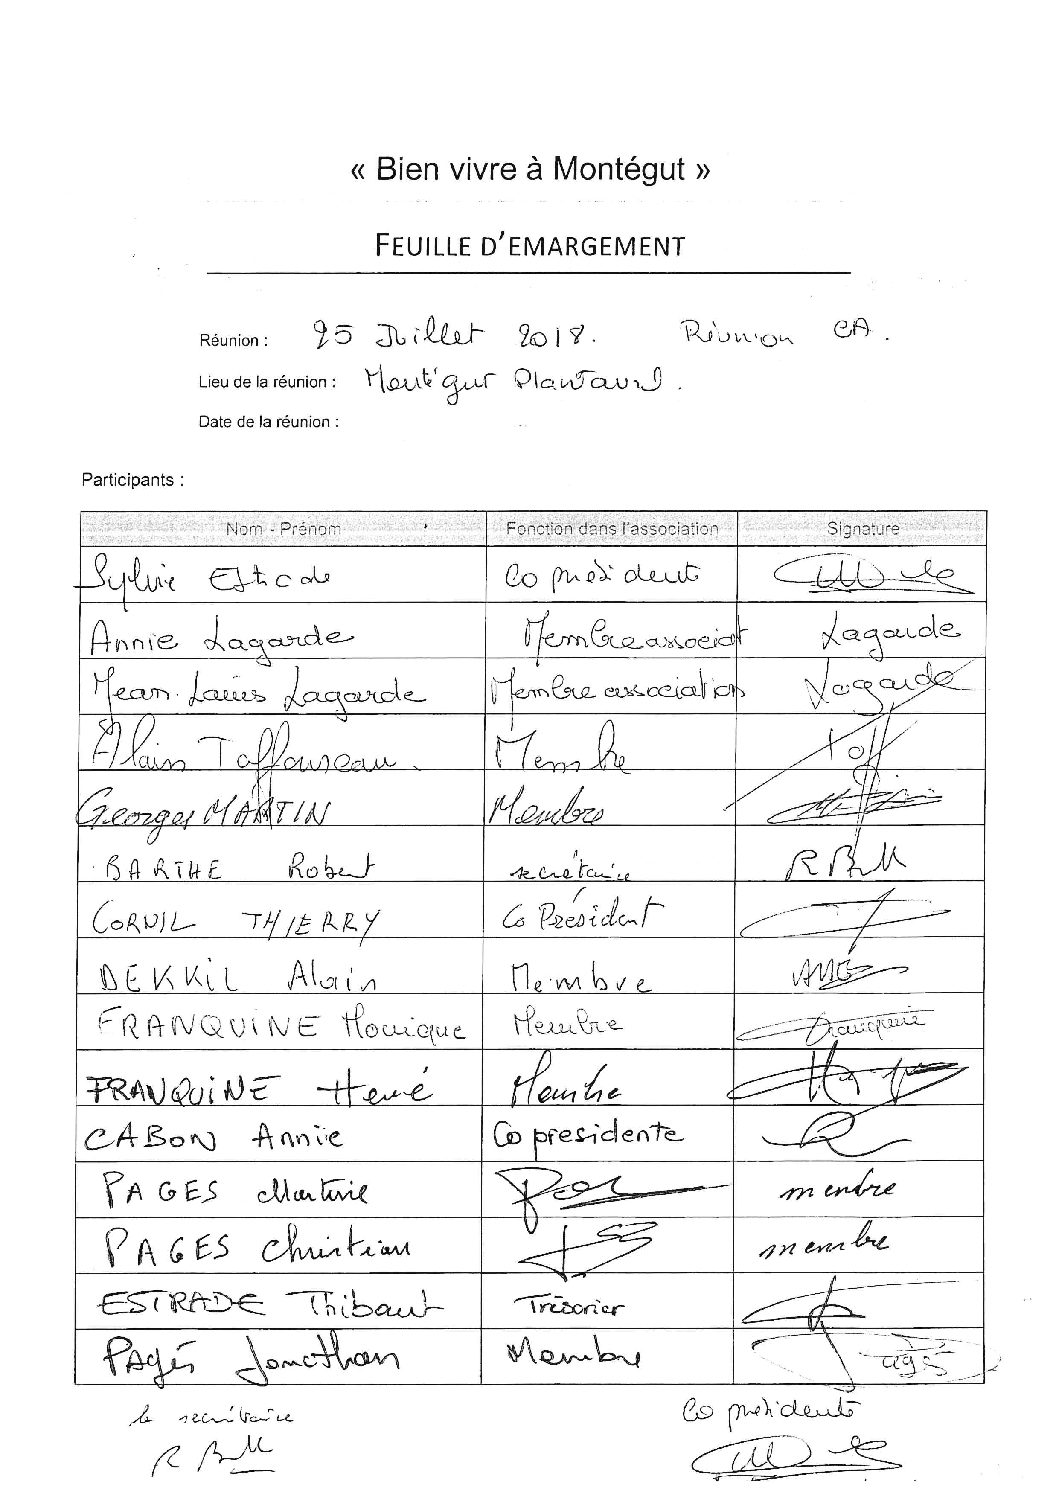 « Bien vivre à Montégut »
FEUILLE D'EMARGEMENT
Réunion : 25 Juillet 2018. Réunion CA.
Lieu de la réunion : Montégut Plantaurel.
Date de la réunion :
Participants :
Nom - Prénom Fonction dans l'association Signature
Sylvie Co président
Annie Lagarde Membre associat Lagarde
Jean-Louis Lagarde Membre association Lagarde
Alain Taffoureau. Membre Toff
Georges MARTIN Membre
BARTHE Robert secrétaire
CORNIL THIERRY Co Président
DEKKIL Alain Membre
FRANQUINE Monique Membre Franquine
FRANQUINE Hervé Membre
CABON Annie Co presidente
PAGES Martine membre
PAGES Christian membre
ESTRADE Thibaut Trésorier
Pagés Jonathan Membre Pagés
le secrétaire Co présidente